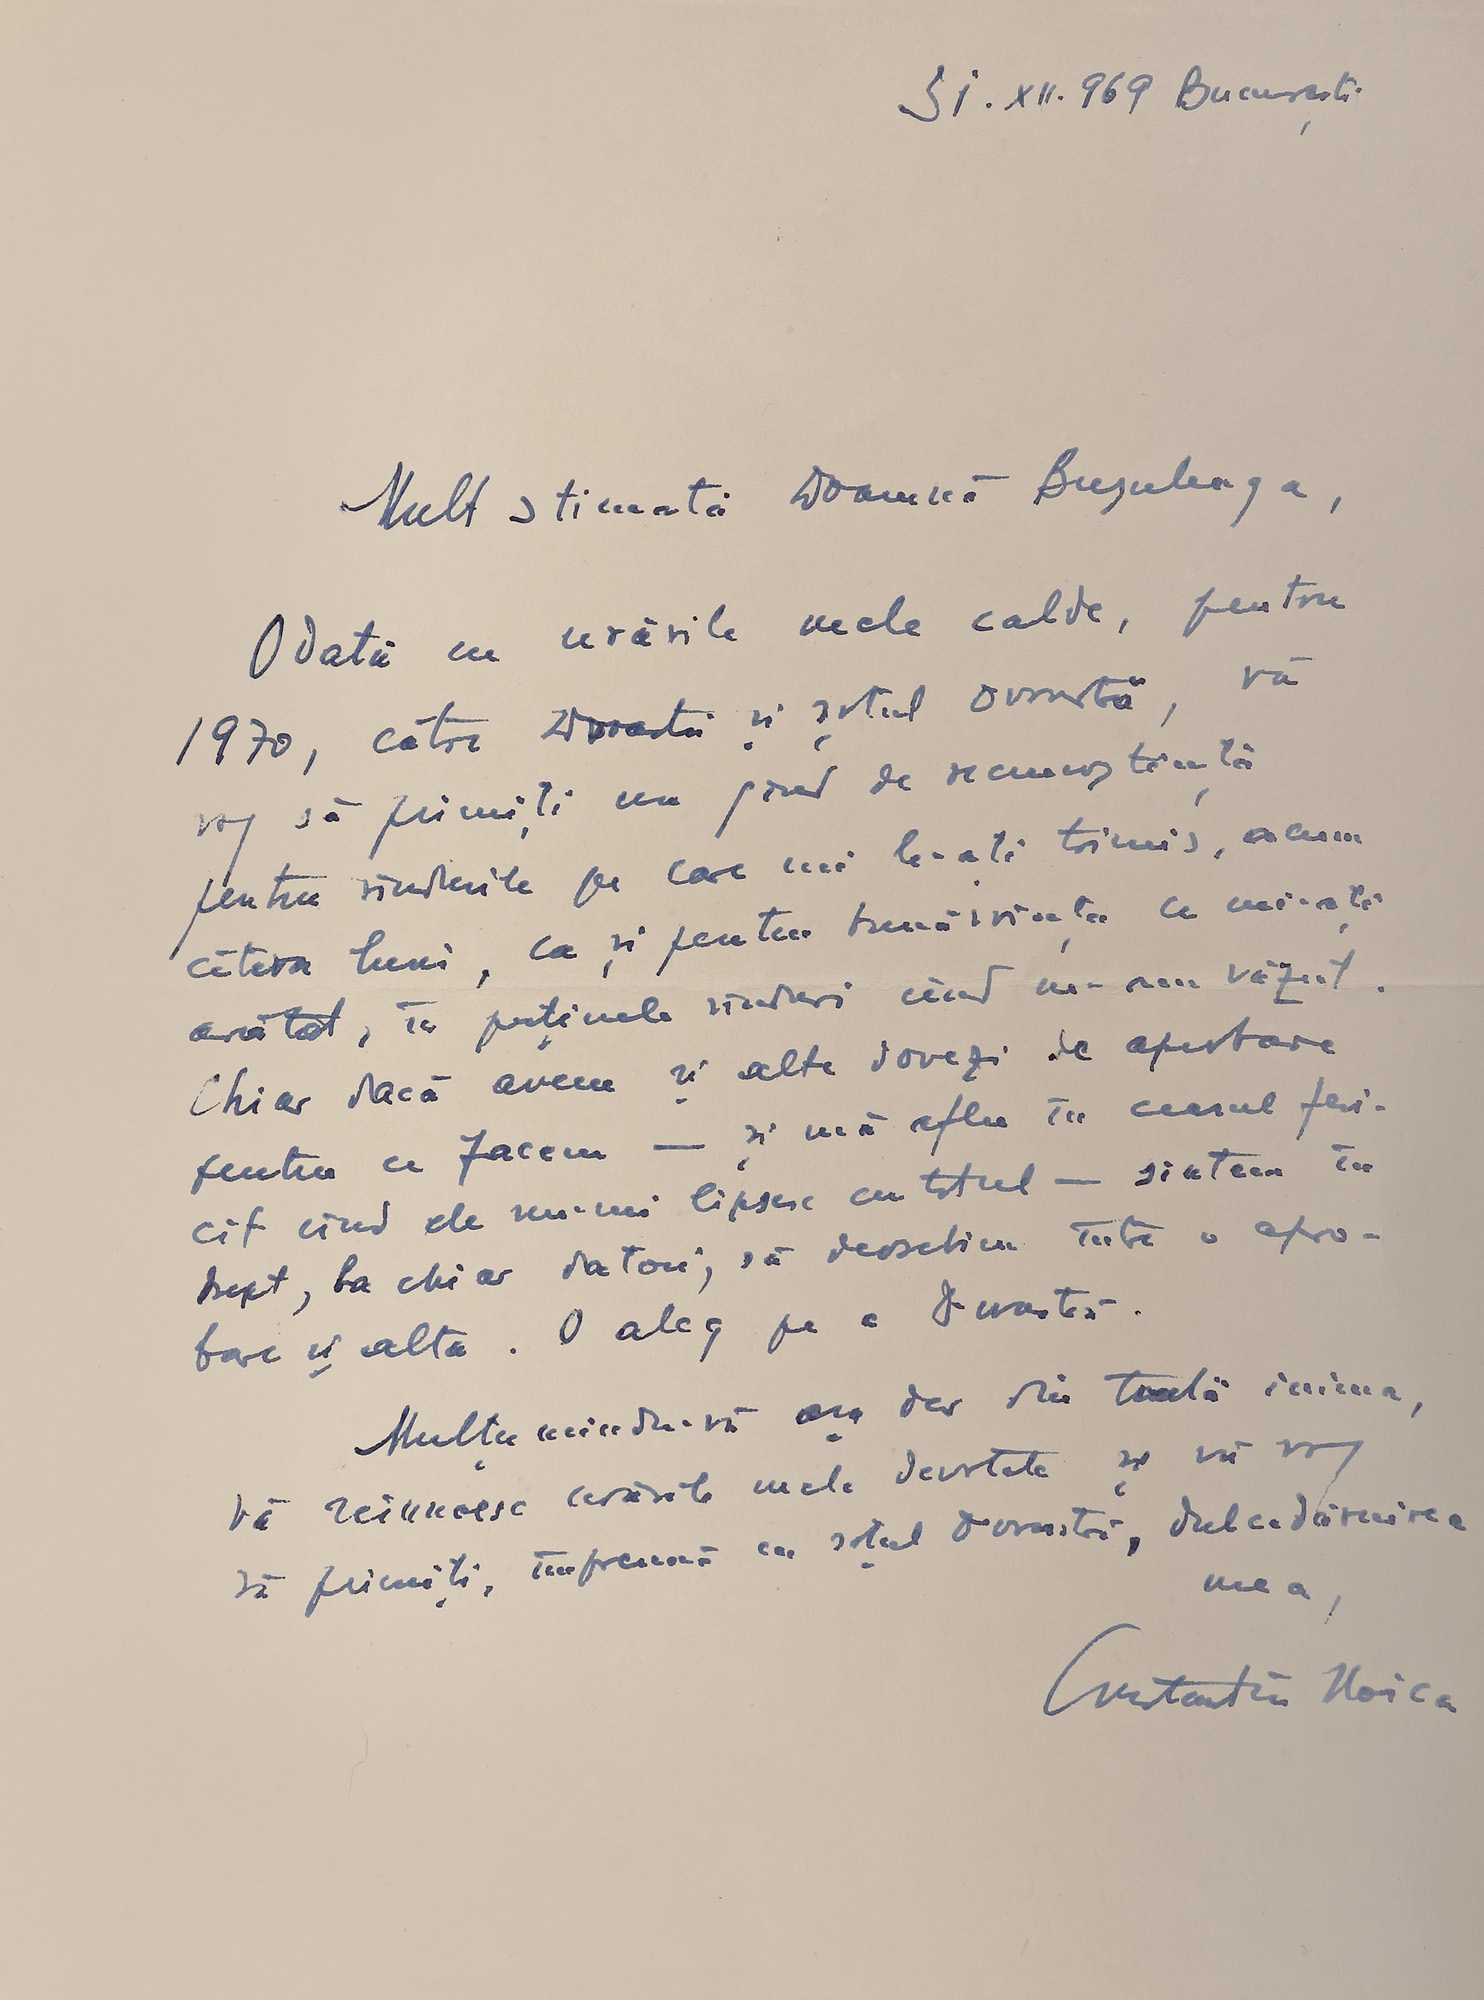 31.XII.969 București
Mult stimată Doamnă Buzuleaga,
Odată cu urările mele calde, pentru
1970, către Dvoastră și soțul Dvoastră, vă
rog să primiți un gînd de recunoștință
pentru rîndurile pe care mi le-ați trimis, acum
cîteva luni, ca și pentru bunăvoința ce mi-ați
arătat, în puținele rînduri cînd ne-am văzut.
Chiar dacă avem și alte dovezi de aprobare
pentru ce facem — și mă aflu în ceasul feri-
cit cînd ele nu-mi lipsesc cu totul — sîntem în
drept, ba chiar datori, să deosebim între o apro-
bare și alta. O aleg pe a D-voastră.
Mulțumindu-vă așa dar din toată inima,
vă reînnoesc urările mele devotate și vă rog
să primiți, împreună cu soțul D-voastră,
mea,
Constantin Noica